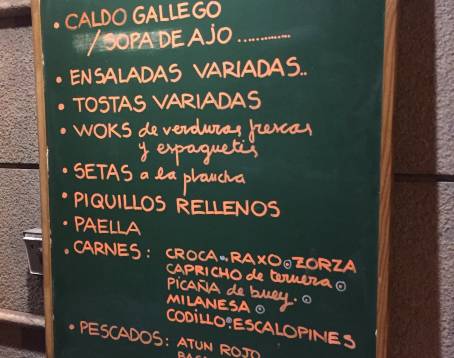 • CALDO GALLEGO
/SOPA DE AJO ............
• ENSALADAS VARIADAS..
• TOSTAS VARIADAS
• WOKS de verduras frescas
y espaguetis
• SETAS a la plancha
• PIQUILLOS RELLENOS
• PAELLA
• CARNES: CROCA. RAXO ZORZA
CAPRICHO de ternera
PICAÑA de buey.
MILANESA
CODILLO ESCALOPINES
• PESCADOS: ATUN ROJO